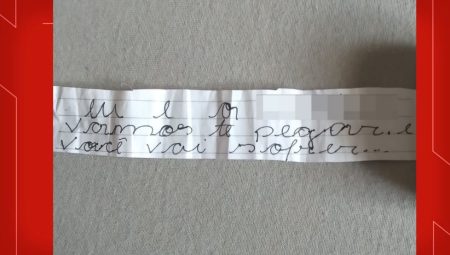 eu e o
vamos te pegar. e
você vai sofrer...